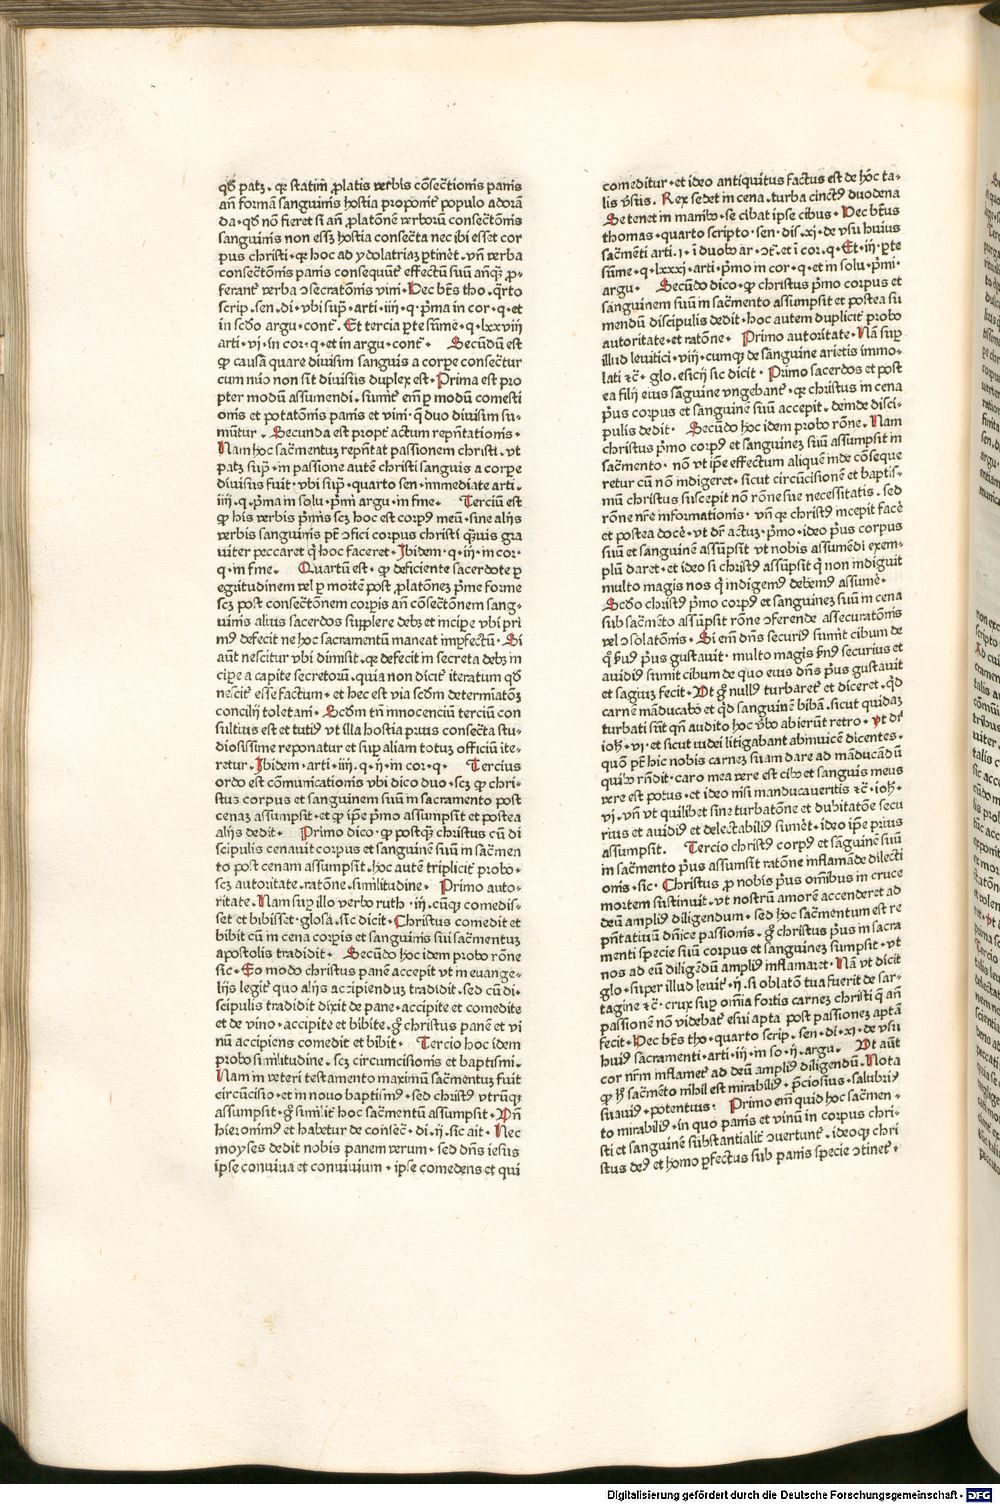 qd̄ patꝫ · qꝛ statim̄ ꝓlatis verbis cōsecr̄tionis panis
an̄ formā sanguinis hostia proponit᷑ populo adorā
da · qd̄ nō fieret si an̄ ꝓlatōnē verborū consecr̄tōnis
sanguinis non essꝫ hostia consecr̄ta nec ibi esset cor
pus christi · qꝛ hoc ad ydolatriaꝫ ꝑtinēt · vn̄ verba
consecr̄tōnis panis consequūt᷑ effectū suū anꝙꝫ ꝓ-
ferant᷑ verba ↄsecratōnis vini · Hec btūs tho · qͣrto
scrip · sen · di · vbi supͣ · arti · iiij · q · pͥma in cor · q · et
in scd̄o argu · cont᷑ · Et tercia ꝑte sūme · q · lxxviij
arti · vj · in cor · q · et in argu · cont᷑ · Secūdū est
ꝙ causa quare diuisim sanguis a corpe consecr̄tur
cum nūc non sit diuisus duplex est · Prima est pro
pter modū assumendi · sumit᷑ em̄ ꝑ modū comesti
onis et potatōnis panis et vini · q̄ duo diuisim su-
mūtur · Secunda est propt᷑ actum repn̄tationis ·
Nam hoc sacr̄mentuꝫ repn̄tat passionem christi · vt
patꝫ supͣ · in passione autē christi sanguis a corpe
diuisus fuit · vbi supͣ · quarto sen · immediate arti ·
iiij · q · pͥma in solu · pͥmi argu · in fine · Terciū est
ꝙ his verbis pͥmis scꝫ hoc est corpꝰ meū · sine alijs
verbis sanguinis pt᷑ ↄfici corpus christi qͣuis gra
uiter peccaret qͥ hoc faceret · Ibidem · q · ij · in cor ·
q · in fine · Quartū est · ꝙ deficiente sacerdote ꝑ
egritudinem vel ꝑ mortē post ꝓlatōneꝫ pͥme forme
scꝫ post consecr̄tōnem corpis an̄ cōsecr̄tōnem sang-
uinis alius sacerdos supplere debꝫ et incipe vbi pri
mꝰ defecit ne hoc sacramentū maneat imꝑfectū · Si
aūt nescitur vbi dimisit · qꝛ defecit in secreta debꝫ in
cipe a capite secretorū · quia non dicit᷑ iteratum qd̄
nescit᷑ esse factum · et hec est via scd̄m determīatōꝫ
concilij toletani · Scd̄m tn̄ innocenciū terciū con
sultius est et tutiꝰ vt illa hostia prius consecr̄ta stu-
diosissime reponatur et suꝑ aliam totuꝫ officiū ite-
retur · Ibidem · arti · iiij · q · ij · in cor · q · Tercius
ordo est cōmunicationis vbi dico duo · scꝫ ꝙ chri-
stus corpus et sanguinem suū in sacramento post
cenaꝫ assumpsit · et ꝙ ip̄e pͥmo assumpsit et postea
alijs dedit · Primo dico · ꝙ postꝙͣ christus cū di
scipulis cenauit corpus et sanguinē suū in sacr̄men
to post cenam assumpsit · hoc autē tripliciť probo ·
scꝫ autoritate · ratōne · similitudine · Primo auto-
ritate · Nam suꝑ illo verbo ruth · iij · cūqꝫ comedis-
set et bibisset · glosa · sic dicit · Christus comedit et
bibit cū in cena corpis et sanguinis sui sacr̄mentuꝫ
apostolis tradidit · Secūdo hoc idem probo rōne
sic · Eo modo christus panē accepit vt in euange-
lijs legit᷑ quo alijs accipienduꝫ tradidit · sed cū di-
scipulis tradidit dixit de pane · accipite et comedite
et de vino · accipite et bibite · gͦ christus panē et vi
nū accipiens comedit et bibit · Tercio hoc idem
probo similitudine · scꝫ circumcisionis et baptismi ·
Nam in veteri testamento maximū sacr̄mentuꝫ fuit
circūcisio · et in nouo baptismꝰ · sed christꝰ vtrūqꝫ
assumpsit · gͦ similiť hoc sacr̄mentū assumpsit · Vn̄
hieronimꝰ et habetur de consecr̄ · di · ij · sic ait · Nec
moyses dedit nobis panem verum · sed dn̄s iesus
ipse conuiua et conuiuium · ipse comedens et qui
comeditur · et ideo antiquitus factus est de hoc ta-
lis v̄sus · Rex sedet in cena · turba cinctꝰ duodena
Se tenet in manibꝰ · se cibat ipse cibus · Hec btūs
thomas · quarto scripto · sen · dis · xj · de vsu huius
sacr̄mēti arti · j · ī duobꝰ ar · ↄt᷑ · et ī cor · q · Et · iij · ꝑte
sūme · q · lxxxj · arti · pͥmo in cor · q · et in solu · pͥmi ·
argu · Secūdo dico · ꝙ christus pͥmo corpus et
sanguinem suū in sacr̄mento assumpsit et postea su
mendū discipulis dedit · hoc autem dupliciť probo
autoritate · et ratōne · Primo autoritate · Nā suꝑ
illud leuitici · viij · cumqꝫ de sanguine arietis immo-
lati ⁊c̄ · glo · esicij sic dicit · Primo sacerdos et post
ea filij eius sāguine vngebant᷑ · qꝛ christus in cena
pͥus corpus et sanguinē suū accepit · deinde disci-
pulis dedit · Secūdo hoc idem probo rōne · Nam
christus pͥmo corpꝰ et sanguineꝫ suū assumpsit in
sacr̄mento · nō vt ip̄e effectum aliquē inde cōseque
retur cū nō indigeret · sicut circūcisionē et baptis-
mū christus suscepit nō rōne sue necessitatis · sed
rōne nr̄e informationis · vn̄ qꝛ christꝰ incepit facē
et postea docē · vt dr̄ actuꝫ · pͥmo · ideo pͥus corpus
suū et sanguinē assūpsit vt nobis assumēdi exem-
plū daret · et ideo si christꝰ assūpsit qͥ non indiguit
multo magis nos qͥ indigemꝰ debemꝰ assumē ·
Scd̄o christꝰ pͥmo corpꝰ et sanguineꝫ suū in cena
sub sacr̄mēto assūpsit rōne ↄferende assecuratōnis
vel ↄsolatōnis · Si em̄ dn̄s securiꝰ sumit cibum de
qͦ s̄uꝰ pͥus gustauit · multo magis s̄uꝰ securius et
auidiꝰ sumit cibum de quo eius dn̄s pͥus gustauit
et sagiuꝫ fecit · Vt gͦ nullꝰ turbaret᷑ et diceret · qͥd
carnē māducabo et qͥd sanguinē bibā · sicut quidaꝫ
turbati sūt qn̄ audito hoc v̄bo abierūt retro · vt dr̄
ioħ · vj · et sicut iudei litigabant abinuicē dicentes ·
quō pt᷑ hic nobis carneꝫ suam dare ad māducādū
quibꝰ rn̄dit · caro mea vere est cibꝰ et sanguis meus
vere est potus · et ideo nisi manducaueritis ⁊c̄ · ioħ ·
vj · vn̄ vt quilibet sine turbatōne et dubitatōe secu
rius et auidiꝰ et delectabiliꝰ sumēt · ideo ip̄e prius
assumpsit. Tercio christꝰ corpꝰ et sāguinē suū
in sacr̄mento pͥus assumsit ratōne inflamāde dilecti
onis · sic · Christus ꝓ nobis pͥus om̄ibus in cruce
mortem sustinuit · vt nostrū amorē accenderet ad
deū ampliꝰ diligendum · sed hoc sacr̄mentum est re
pn̄tatiuū dn̄ice passionis · gͦ christus pͥus in sacra
menti specie suū corpus et sanguineꝫ sumpsit · vt
nos ad eū diligēdū ampliꝰ inflamaret · Nā vt dicit
glo · super illud leuit᷑ · ij · si oblatō tua fuerit de sar-
tagine ⁊c̄ · crux suꝑ om̄ia fortis carneꝫ christi qͥ an̄
passionē nō videbat᷑ esui apta post passioneꝫ aptā
fecit · Hec btūs tho · quarto scrip · sen · di · xj · de vsu
huiꝰ sacramenti · arti · iij · in so · ij · argu · Vt aūt
cor nr̄m inflamet᷑ ad deū ampliꝰ diligendū · Nota
ꝙ hͦ sacr̄mēto nihil est mirabiliꝰ · pͥciosius · salubriꝰ
suauiꝰ · potentius · Primo em̄ quid hoc sacr̄men-
to mirabiliꝰ · in quo panis et vinū in corpus chri-
sti et sanguinē substantialiť ↄuertunt᷑ · ideoqꝫ chri
stus deꝰ et homo ꝑfectus sub panis specie ↄtinet᷑ ·
Digitalisierung gefördert durch die Deutsche Forschungsgemeinschaft · DFG